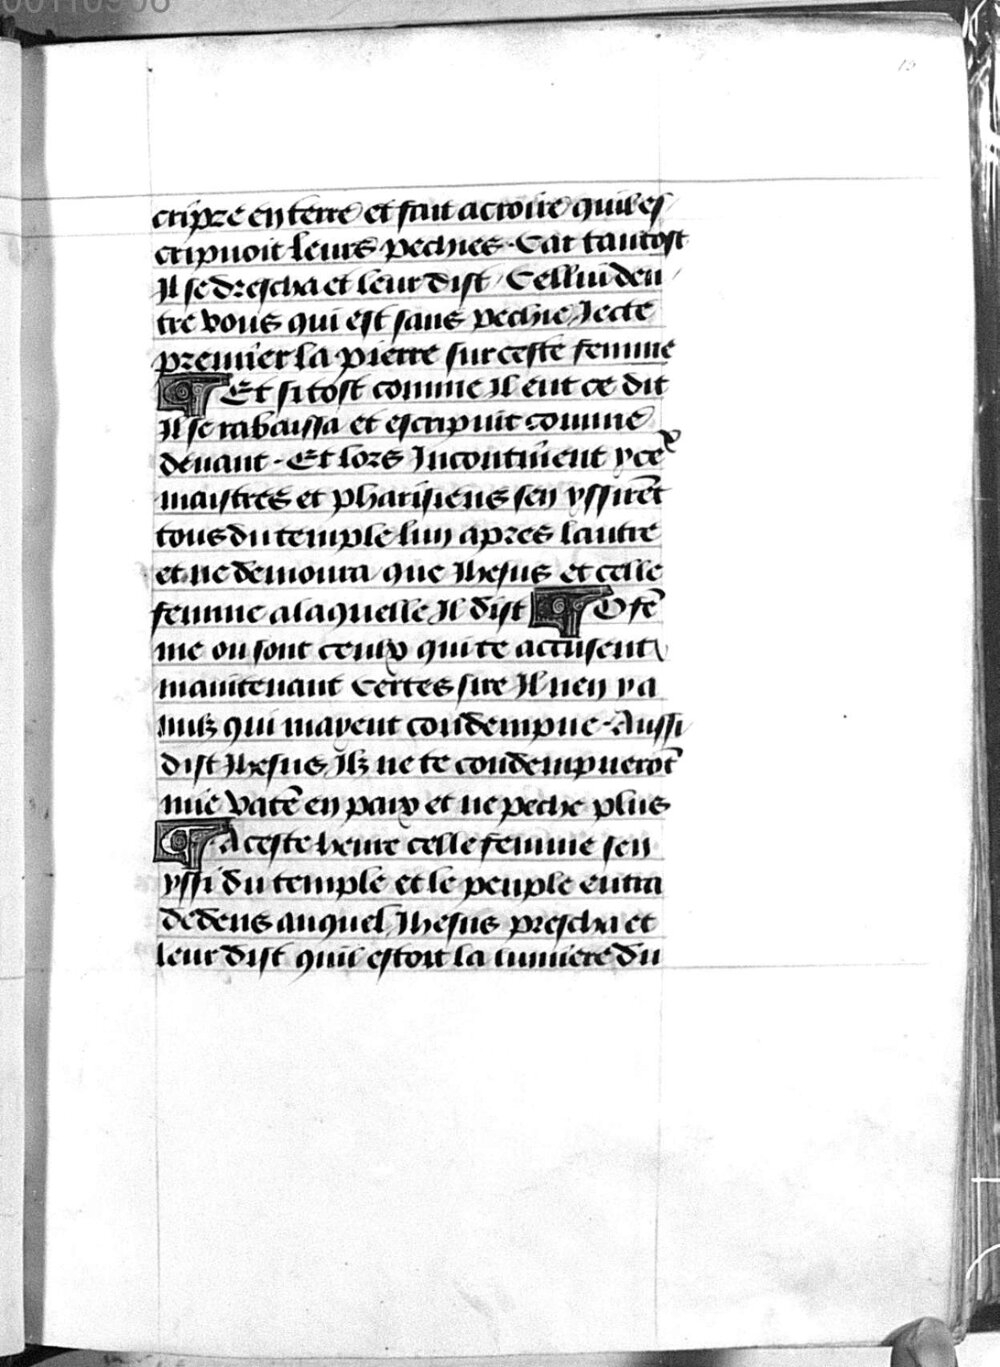 00110906
15
cripre en terre et fait acroire quil es
cripuoit leurs pechies. Car tantost
Il se drescha et leur dist / Cellui den
tre vous qui est sans pechie Jecte
premier la pierre sur ceste femme
Et si tost comme Il eut ce dit
Il se rabaissa et escripuit comme
deuant. Et lors Incontinent yceˣ
maistres et pharisiens sen yssirēt
tous du temple lun apres lautre
et ne demoura que Ihesus et celle
femme a laquelle Il dist O fē
me ou sont ceulx qui te accusent
maintenant Certes sire Il nen y a
nulz qui mayent condempne. Aussi
dist Ihesus Ilz ne te condempnerōt
mie vatē en paix et ne peche plus
A ceste heure celle femme sen
yssi du temple et le peuple entra
dedens auquel Ihesus prescha et
leur dist quil estoit la lumiere du